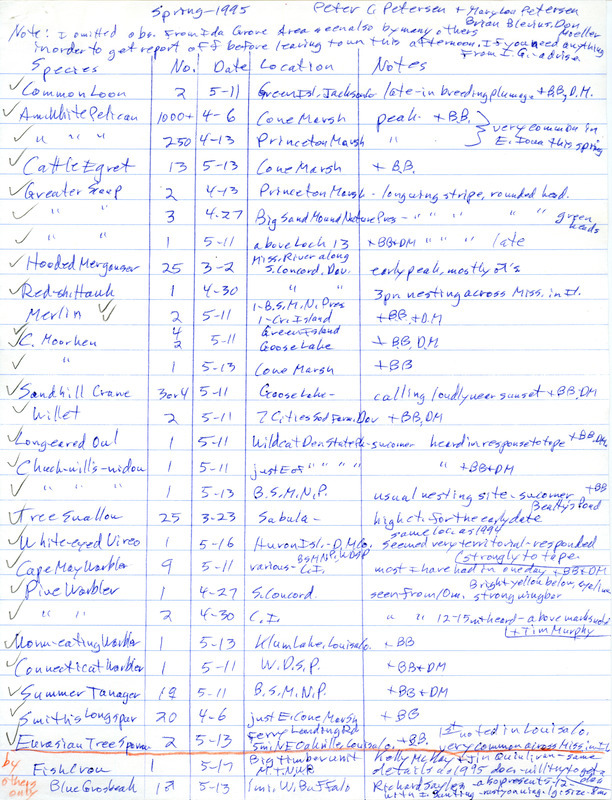 Spring-1995 Peter C Petersen + Mary Lou Petersen
Brian Blevins, Don Moeller
Note: I omitted obs. From Ida Grove Area seen also by many others
in order to get report off before leaving town this afternoon. If you need anything
From I.G. - advise.
Species No. Date Location Notes
Common Loon 2 5-11 Green Isl. Jackson Co late-in breeding plumage +BB, D.M.
Am. White Pelican 1000+ 4-6 Cone Marsh peak +B.B.
" " " 250 4-13 Princeton Marsh " very common in E. Iowa this spring
Cattle Egret 13 5-13 Cone Marsh + B.B.
Greater Scaup 2 4-13 Princeton Marsh - long wing stripe, rounded head.
" " 3 4-27 Big Sand Mound Nature Pres - " " " " green heads
" " 1 5-11 above Lock 13 +BB+DM " " " late
Hooded Merganser 25 3-2 Miss. River along S. Concord, Dav. early peak, mostly ♂'s
Red-sh. Hawk 1 4-30 " " 3 pr. nesting across Miss. in Il.
Merlin 2 5-11 1-B.S.M.N. Pres +BB, +D.M
1-Cr. Island
C. Moorhen 4 Green Island
2 5-11 Goose Lake +BB, DM
" 1 5-13 Cone Marsh +BB
Sandhill Crane 3 or 4 5-11 Goose Lake - calling loudly near sunset +BB, DM
Willet 2 5-11 7 Cities Sod Farm, Dav +BB, DM
Long eared Owl 1 5-11 Wildcat Den State Pk - sw corner heard in response to tape +BB, DM
Chuck-will's-widow 1 5-11 just E of " " " " " +BB+DM
" " " 1 5-13 B.S.M.N.P. usual nesting site - sw corner +BB
Beatty's Pond
Tree Swallow 25 3-23 Sabula - high ct. for the early date
same loc. as 1994
White-eyed Vireo 1 5-16 Huron Isl. - D.M. Co. seemed very territorial - responded
strongly to tape
Cape May Warbler 9 5-11 various - B.S.M.N.P., W.D.S.P. C.I. most I have had in one day, +BB+DM
Bright yellow below, eyeline
Pine Warbler 1 4-27 S. Concord. seen from 10m. strong wing bar
" " 2 4-30 C.I. " " 12-15m heard - above marks
+Tim Murphy
Worm-eating Warbler 1 5-13 Klum Lake, Louisa Co. +BB
Connecticut Warbler 1 5-11 W.D.S.P. +BB+DM
Summer Tanager 1♀ 5-11 B.S.M.N.P. +BB+DM
Smith's Longspur 20 4-6 just E. Cone Marsh +BB
Eurasian Tree Sparrow 2 5-13 Ferry Landing Rd 5mi NE Oakville, Louisa Co. +BB, 1st noted in Louisa Co.
very common across Miss. in Il
by others only
Fish Crow 1 5-17 Big Timber unit M.T.N.W.R Kelly McKay + Jim Quinlivan - same
details as 1995 docs - will try to get
Blue Grosbeak 1♂ 5-13 1 mi. W. Buffalo Richard - also present 5-12
with I. Bunting - rusty on wing - lg. size